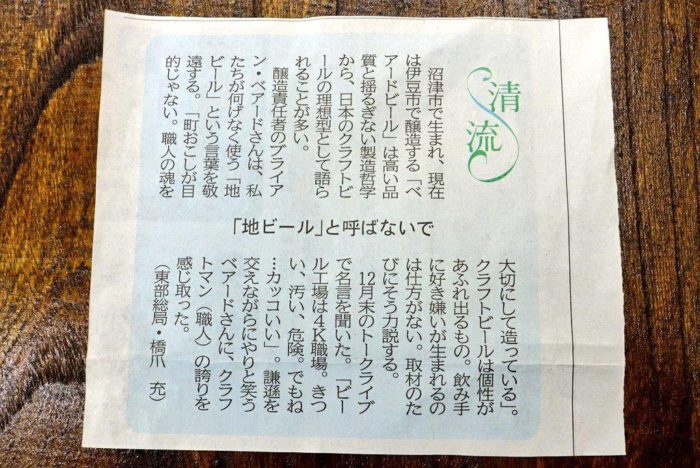 清流
沼津市で生まれ、現在
は伊豆市で醸造する「ベ
アードビール」は高い品
質と揺るぎない製造哲学
から、日本のクラフトビ
ールの理想型として語ら
れることが多い。
醸造責任者のブライア
ン・ベアードさんは、私
たちが何げなく使う「地
ビール」という言葉を敬
遠する。「町おこしが目
的じゃない。職人の魂を
「地ビール」と呼ばないで
大切にして造っている」。
クラフトビールは個性が
あふれ出るもの。飲み手
に好き嫌いが生まれるの
は仕方がない。取材のた
びにそう力説する。
12月末のトークライブ
で名言を聞いた。「ビー
ル工場は4K職場。きつ
い、汚い、危険。でもね
…カッコいい」。謙遜を
交えながらにやりと笑う
ベアードさんに、クラフ
トマン（職人）の誇りを
感じ取った。
（東部総局・橋爪　充）